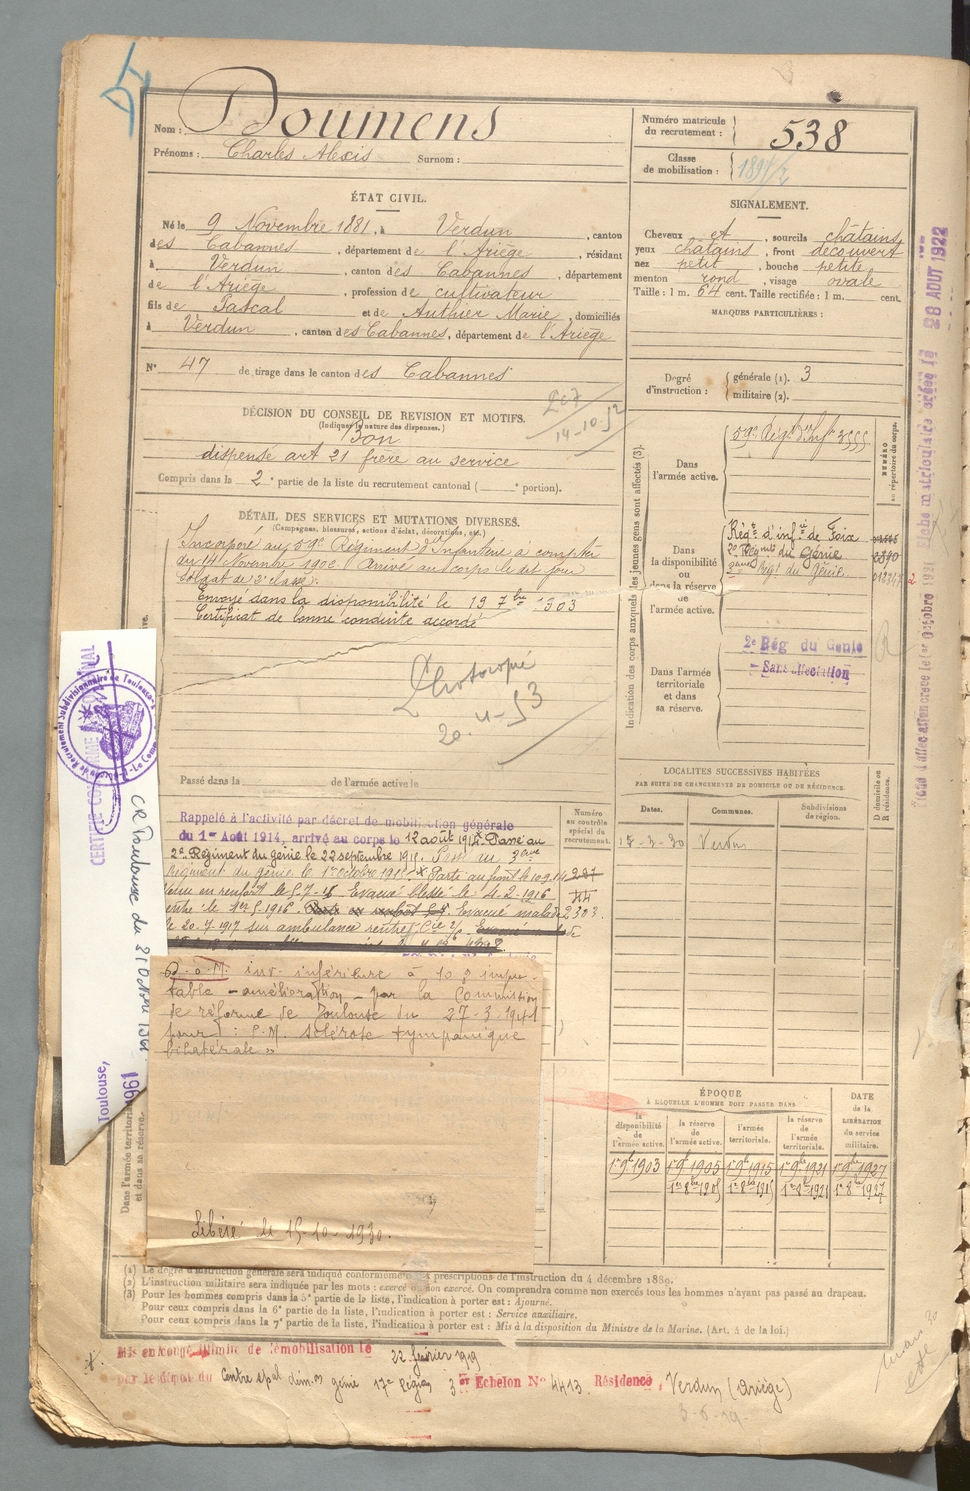 Nom : Doumens
Prénoms : Charles Alexis Surnom :
Numéro matricule du recrutement : 538
Classe de mobilisation :
ÉTAT CIVIL.
Né le 9 Novembre 1881, à Verdun, canton
des Cabannes, département de l'Ariège, résidant
à Verdun, canton des Cabannes, département
de l'Ariège, profession de cultivateur
fils de Pascal et de Authier Marie, domiciliés
à Verdun, canton des Cabannes, département de l'Ariège
N° 47 de tirage dans le canton des Cabannes
SIGNALEMENT.
Cheveux et, sourcils châtains
yeux châtains, front découvert
nez petit, bouche petite
menton rond, visage ovale
Taille : 1 m. 64 cent. Taille rectifiée : 1 m. cent.
MARQUES PARTICULIÈRES :
Degré d'instruction : générale (1). 3
militaire (2).
DÉCISION DU CONSEIL DE REVISION ET MOTIFS.
(Indiquer la nature des dispenses.)
Bon
dispensé art 21 frère au service
Compris dans la 2e partie de la liste du recrutement cantonal ( e portion).
14-10-52
DÉTAIL DES SERVICES ET MUTATIONS DIVERSES.
(Campagnes, blessures, actions d'éclat, décorations, etc.)
Incorporé au 59e Régiment d'Infanterie à compter
du 14 Novembre 1902 Arrivé au corps le dit jour
soldat de 2e classe.
Envoyé dans la disponibilité le 19 7bre 1903
Certificat de bonne conduite accordé
Photocopié
20-11-53
Passé dans la de l'armée active le
Indication des corps auxquels les jeunes gens sont affectés (3).
NUMÉRO au répertoire du corps.
Dans l'armée active.
59e Régt d'Inf 3555
Dans la disponibilité ou dans la réserve de l'armée active.
Régt d'infie de Foix
2e Régmt du Génie 2890
Régt du Génie
Dans l'armée territoriale et dans sa réserve.
2e Rég du Génie
Sans affectation
LOCALITÉS SUCCESSIVES HABITÉES
PAR SUITE DE CHANGEMENTS DE DOMICILE OU DE RÉSIDENCE.
Dates. Communes. Subdivisions de région. D domicile ou R résidence.
15-3-30 Verdun
Numéro au contrôle spécial du recrutement.
Rappelé à l'activité par décret de mobilisation générale
du 1er Août 1914, arrivé au corps le 12 août 1914. Passé au
2e Régiment du génie le 22 septembre 1915. Passé au 3ème
Régiment du génie le 1er octobre 1915 Parti au front le
Venu en renfort le Evacué blessé le 4.2.1916
rentré le Evacué malade 2303.
le 20.7.1917 sur ambulance rentré
P.à.M. inv. inférieure à 10 % impu
table - amélioration - par la Commission
de réforme de Toulouse du 27-3-1941
pour : P.M. sclérose tympanique
bilatérale »
Libéré le 15-10-1930.
Dans l'armée territoriale et dans sa réserve.
ÉPOQUE
A LAQUELLE L'HOMME DOIT PASSER DANS
la disponibilité de l'armée active.
la réserve de l'armée active.
l'armée territoriale.
la réserve de l'armée territoriale.
DATE de la LIBÉRATION du service militaire.
1er 9bre 1903 1er 9bre 1905 1er 9bre 1915 1er 9bre 1921 1er 9bre 1927
1er 8bre 1905 1er 8bre 1915 1er 8bre 1921 1er 8bre 1927
(1) Le degré d'instruction générale sera indiqué conformément aux prescriptions de l'instruction du 4 décembre 1889.
(2) L'instruction militaire sera indiquée par les mots : exercé ou non exercé. On comprendra comme non exercés tous les hommes n'ayant pas passé au drapeau.
(3) Pour les hommes compris dans la 5e partie de la liste, l'indication à porter est : Ajourné.
Pour ceux compris dans la 6e partie de la liste, l'indication à porter est : Service auxiliaire.
Pour ceux compris dans la 7e partie de la liste, l'indication à porter est : Mis à la disposition du Ministre de la Marine. (Art. 4 de la loi.)
Mis en congé illimité de démobilisation le 22 février 1919
par le dépôt du Centre spal génie 17e Région 3er Echelon N° 4413. Résidence, Verdun (Ariège)
28 AOUT 1922
Toulouse,